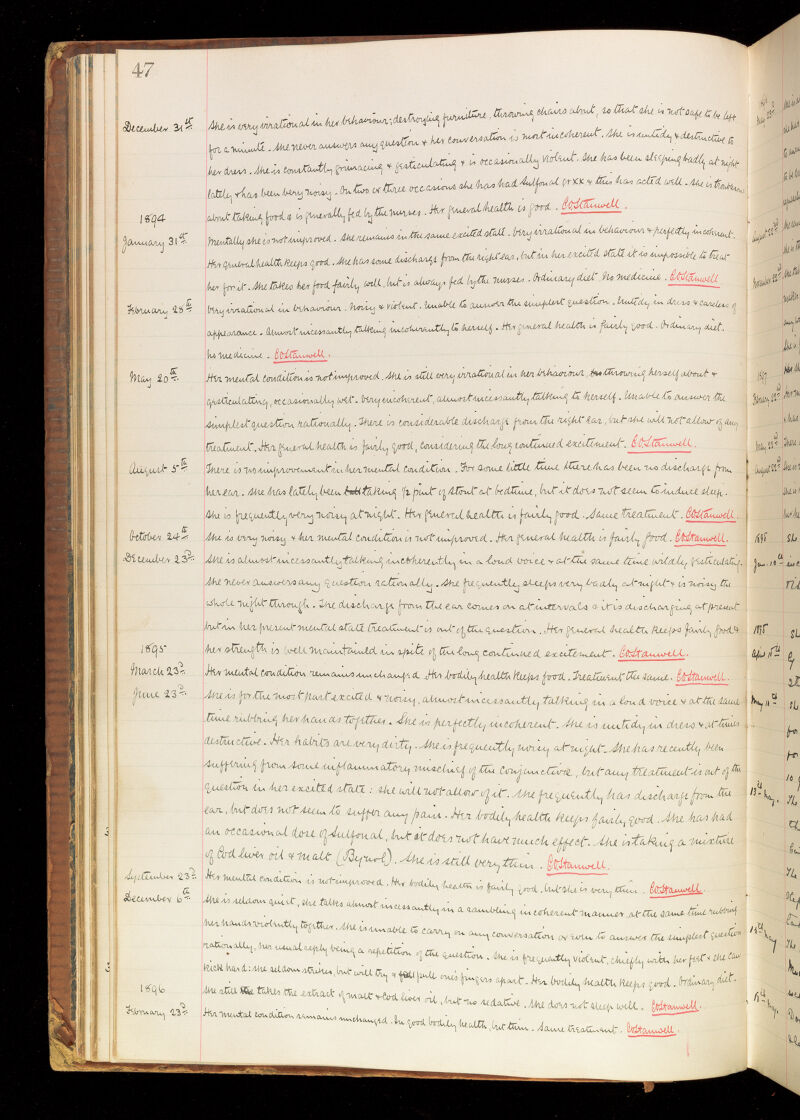 47
December 31st She is very irrational in her behaviour; destroying furniture, throwing chairs about, so that she is not safe to be left
for a minute. She never answers any question & her conversation is most incoherent. She is untidy & destructive to
her dress. She is constantly grimacing & gesticulating & is occasionally violent. She has been sleeping badly at night
lately & has been very noisy. On two or three occasions she has had Sulfonal gr xx & this has acted well. She is troublesome
about taking food & is generally fed by the nurses. Her general health is good. COStanwell.
1894
January 31st Mentally she is not improved. She remains in the same excited state. Very irrational in behaviour & perfectly incoherent.
Her general health keeps good. She has some discharge from the right ear, but in her excited state it is impossible to treat
her for it. She takes her food fairly well, but is always fed by the nurses. Ordinary diet. No medicine. COStanwell
February 28th Very irrational in behaviour. Noisy & violent. Unable to answer the simplest question. Untidy in dress & careless of
appearance. Almost incessantly talking incoherently to herself. Her general health is fairly good. Ordinary diet.
No medicine. COStanwell.
May 20th Her mental condition is not improved. She is still very irrational in her behaviour, throwing herself about &
gesticulating, occasionally wet. Very incoherent, almost incessantly talking to herself. Unable to answer the
simplest question rationally. There is considerable discharge from the right ear, but she will not allow of any
treatment. Her general health is fairly good, considering the long continued excitement. COStanwell.
August 5th There is no improvement in her mental condition. For some little time there has been no discharge from
her ear. She has lately been taking ½ pint of stout at bedtime, but it does not seem to induce sleep.
She is frequently very noisy at night. Her general health is fairly good. Same treatment. COStanwell.
October 24th She is very noisy & her mental condition is not improved. Her general health is fairly good. COStanwell.
December 23rd She is almost incessantly talking incoherently in a loud voice & at the same time wildly gesticulating.
She never answers any question rationally. She frequently sleeps very badly at night & is noisy the
whole night through. The discharge from the ear comes on at intervals & it is discharging at present
but in her present mental state treatment is out of the question. Her general health keeps fairly good &
1895 her strength is well maintained in spite of the long continued excitement. COStanwell.
March 23rd Her mental condition remains unchanged. Her bodily health keeps good. Treatment the same. COStanwell.
June 23rd She is for the most part excited & noisy, almost incessantly talking in a loud voice & at the same
time rubbing her hands together. She is perfectly incoherent. She is untidy in dress & at times
destructive. Her habits are very dirty. She is frequently noisy at night. She has recently been
suffering from some inflammatory mischief of the conjunctivae, but any treatment is out of the
question in her excited state: she will not allow of it. She frequently has discharge from the
ear, but does not seem to suffer any pain. Her bodily health keeps fairly good. She has had
an occasional dose of Sulfonal, but it does not have much effect. She is taking a mixture
of Cod liver oil & malt (Bynol). She is still very thin. COStanwell.
September 23rd Her mental condition is not improved. Her bodily health is fairly good, but she is very thin. COStanwell.
December 6th She is seldom quiet, she talks almost incessantly in a rambling incoherent manner, at the same time rubbing
her hands violently together. She is unable to carry on any conversation or even to answer the simplest question
rationally, her usual reply being a repetition of the question. She is frequently violent, chiefly with her feet & she can
kick hard: she seldom strikes, but will try & pull one's fingers apart. Her bodily health keeps good. Ordinary diet.
1896 She still takes the extract of malt & cod liver oil, but no sedative. She does not sleep well. COStanwell.
February 23rd Her mental condition remains unchanged. In good bodily health, but thin. Same treatment. COStanwell.